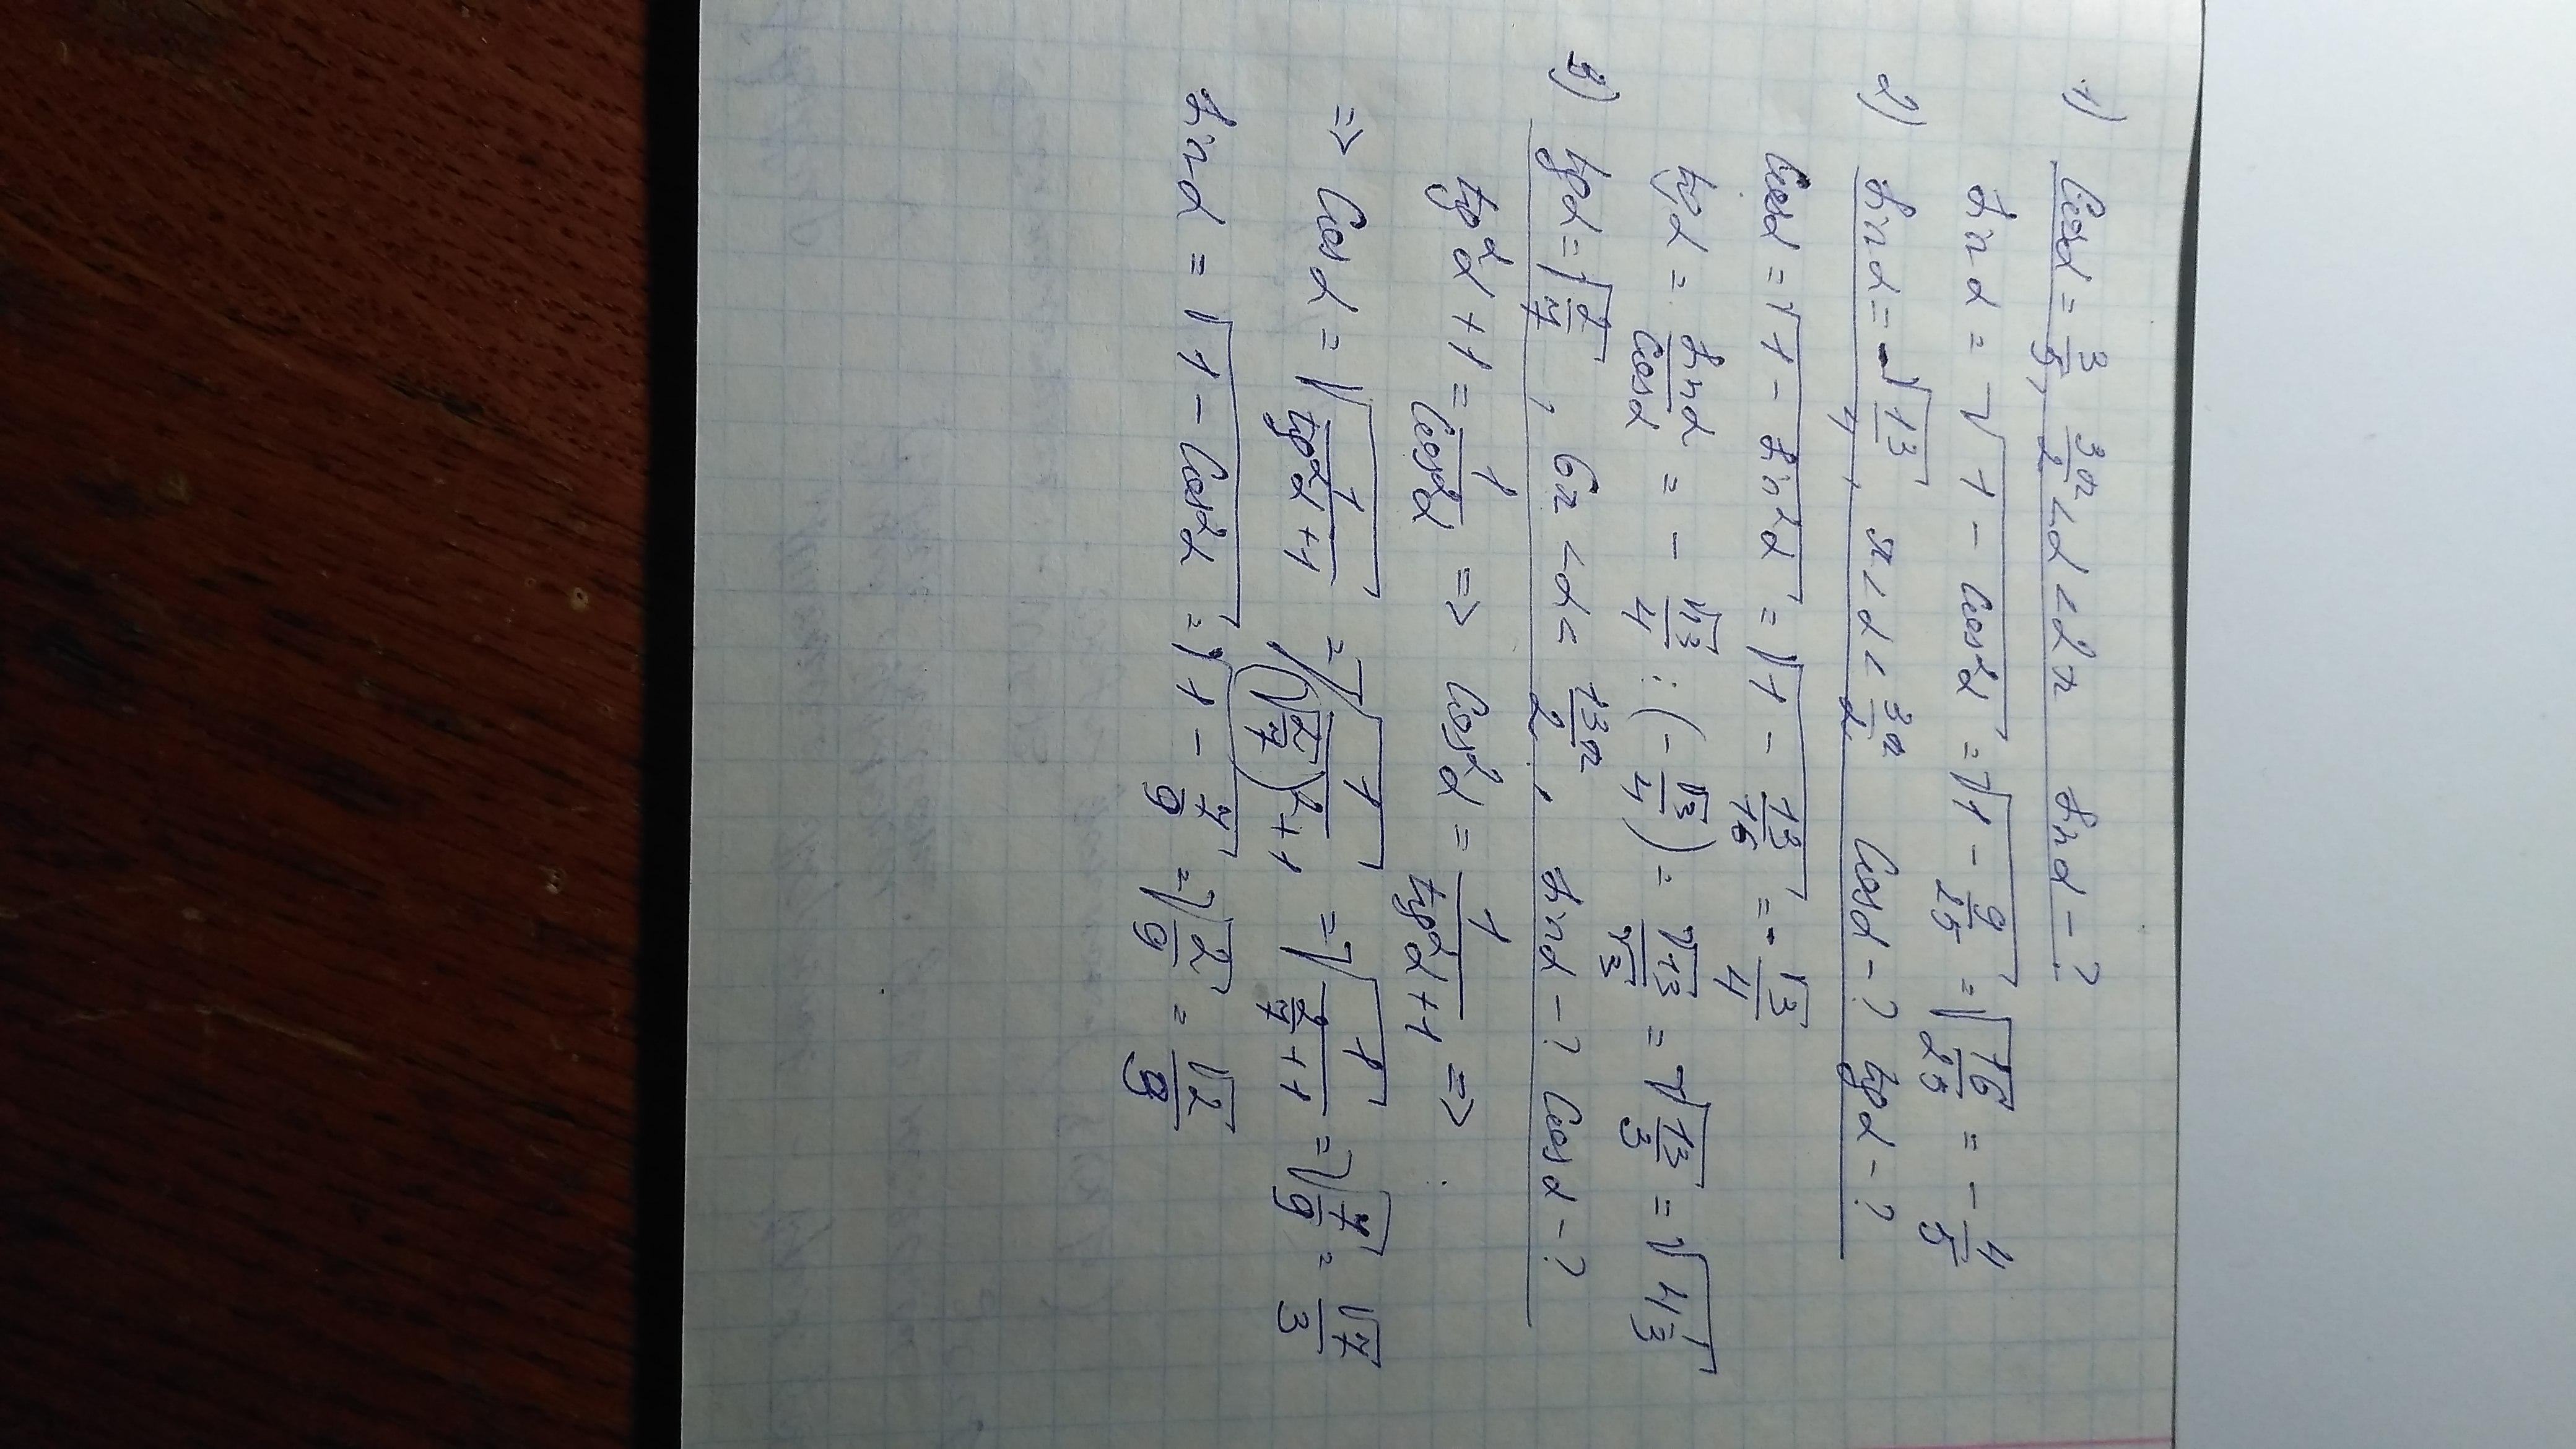 1) Cosα = 3/5, 3π/2 < α < 2π sinα - ?
sinα = √(1 - Cos²α) = √(1 - 9/25) = √(16/25) = - 4/5
2) sinα = - √13/4, π < α < 3π/2 Cosα - ? tgα - ?
Cosα = √(1 - sin²α) = √(1 - 13/16) = - √3/4
tgα = sinα/Cosα = - √13/4 : (- √3/4) = √13/√3 = √(13/3) = √(4 1/3)
3) tgα = √(2/7), 6π < α < 13π/2, sinα - ? Cosα - ?
tg²α + 1 = 1/Cos²α => Cos²α = 1/(tg²α + 1) =>
=> Cosα = √(1/(tg²α + 1)) = √(1/((√(2/7))² + 1)) = √(1/(2/7 + 1)) = √(7/9) = √7/3
sinα = √(1 - Cos²α) = √(1 - 7/9) = √(2/9) = √2/3